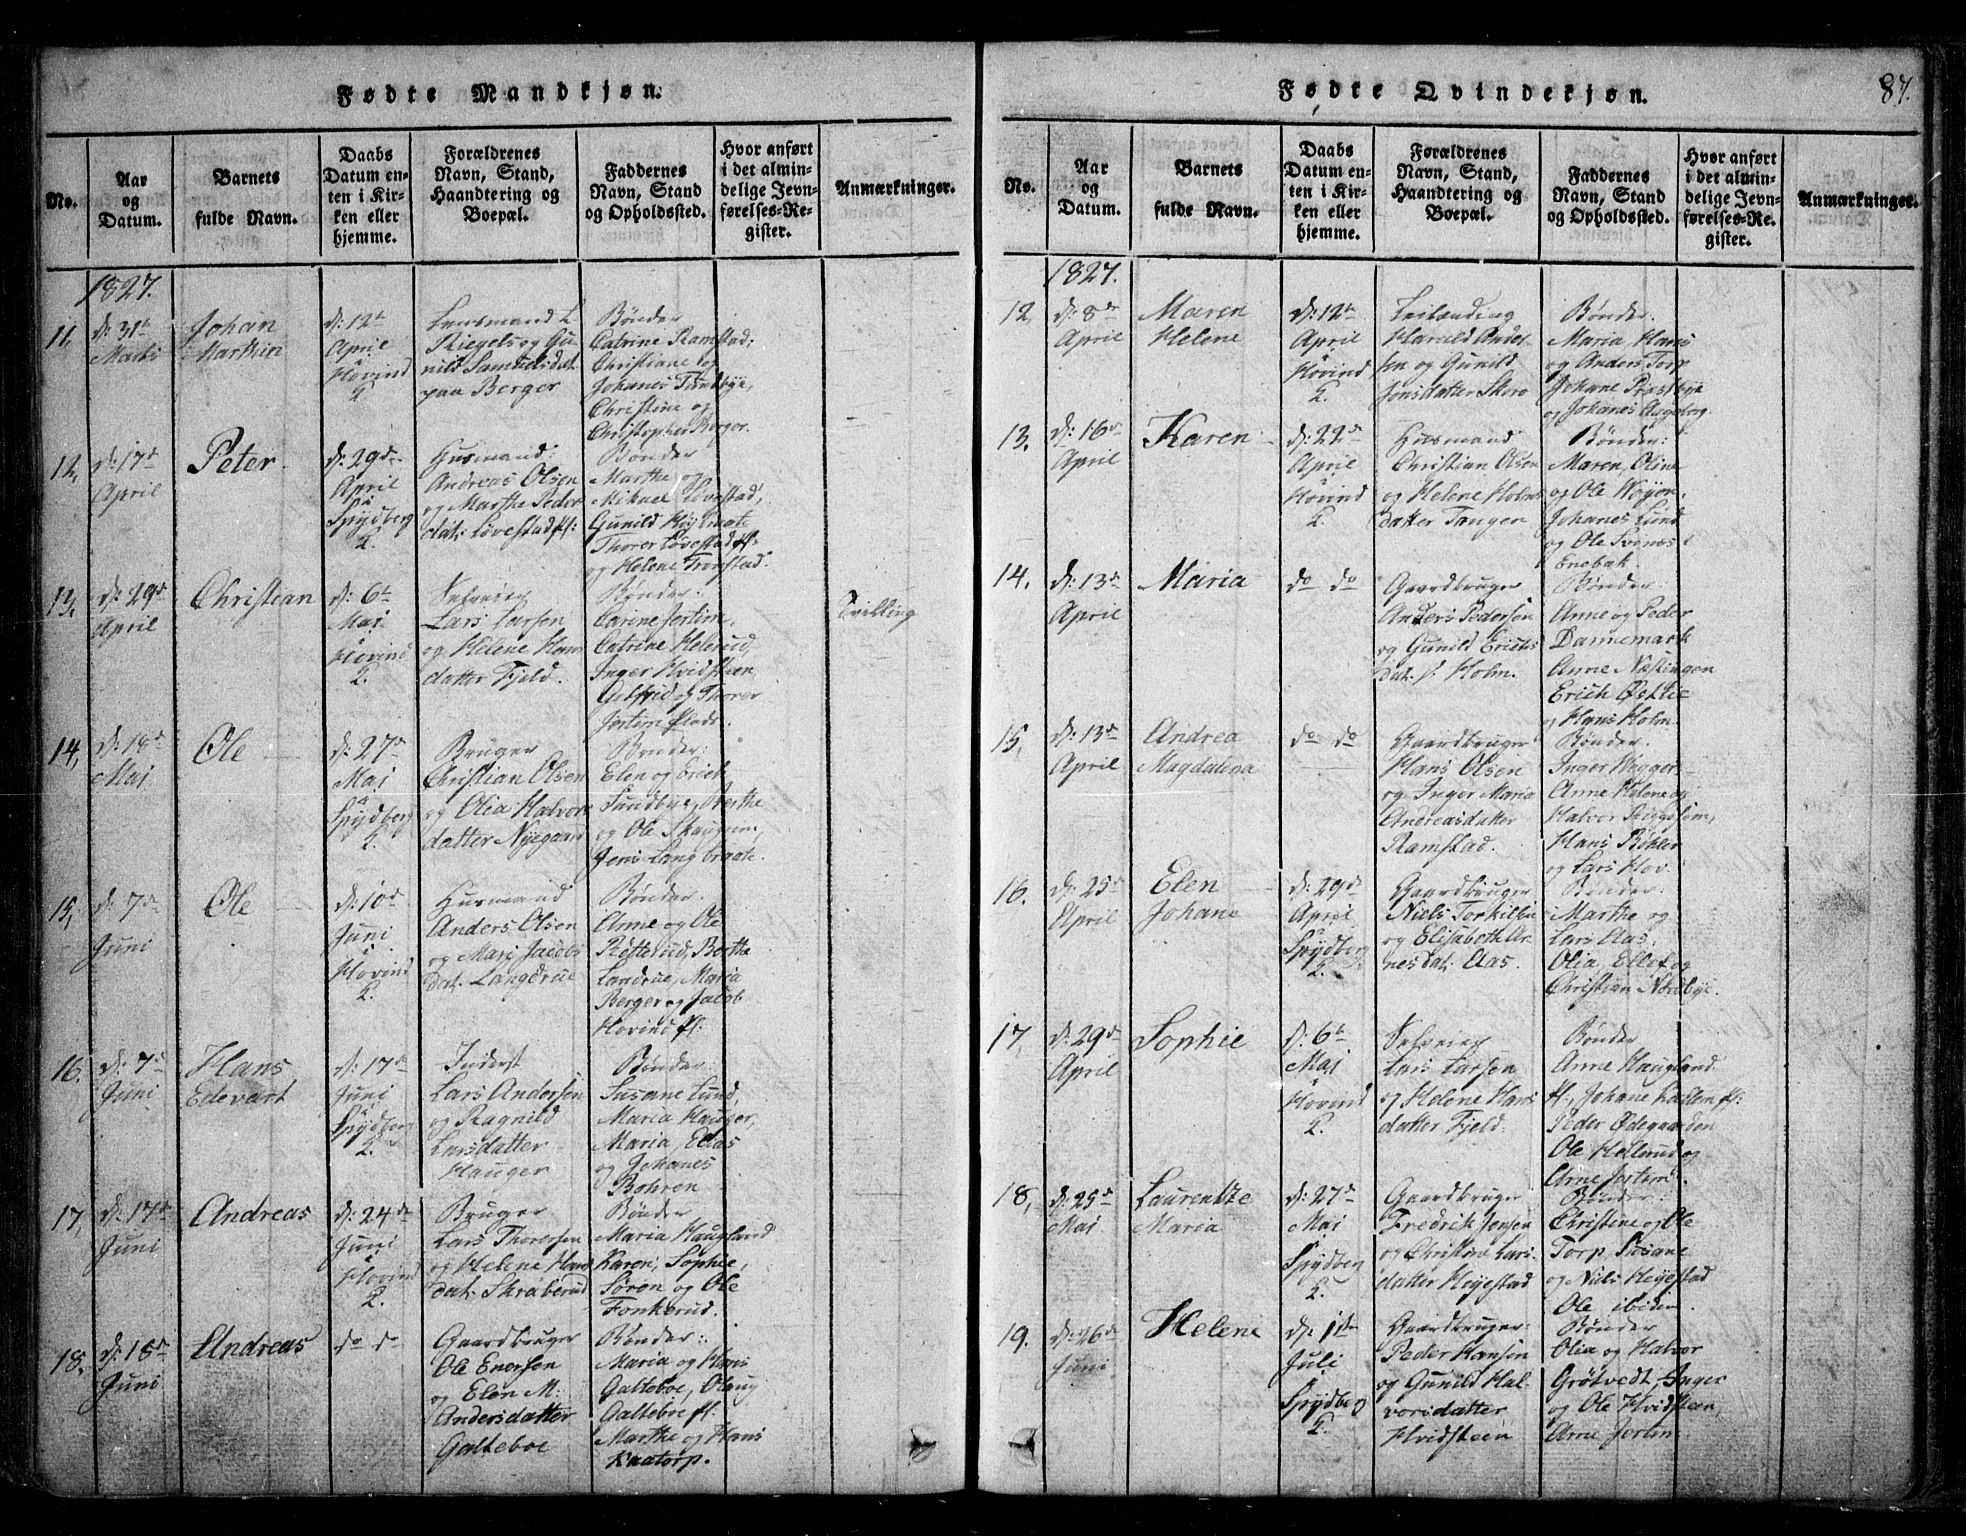 87.
Fødte Mandkjøn.
No.
Aar
og
Datum.
Barnets
fulde Navn.
Daabs
Datum en-
ten i Kir-
ken eller
hjemme.
Forældrenes
Navn, Stand,
Haandtering og
Boepæl.
Faddernes
Navn, Stand
og Opholdssted.
Hvor anført
i det almin-
delige Jevn-
førelses-Re-
gister.
Anmærkninger.
1827.
11,
d: 31te
Marts
Johan
Marthin
d: 12te
April
Hovind
K.
Lensmand L
Riegels og Gu-
nild Samuelsdat.
paa Berger
Bønder
Catrine Ramstad:
Christiane og
Johanes Sundbye,
Christine og
Christopher Berger.
12,
d: 17de
April
Peter
d: 29de
April
Spydberg
K.
Husmand:
Andreas Olsen
og Marthe Peder
dat: Løvestad pl:
Bønder
Marthe og
Mikael Løvestad,
Gunild Høybraate
Thorer Løvestad pl:
og Helene Tronstad.
13,
d: 29de
April
Christian
d: 6te
Mai
Hovind
K.
Selveier
Lars Larsen
og Helene Hans
datter Fjeld.
Bønder:
Carine Jortim,
Catrine Helerud,
Inger Hvidsteen
og Thorer
Jortim Plads.
Tvilling
14,
d: 18de
Mai
Ole
d: 27de
Mai
Spydberg
K.
Bruger
Christian Olsen
og Olia Halvors
datter Nyegaard
Bønder:
Elen og Erich
Sundbye, Berthe
og Ole Skaugrim,
Jens Langbraate.
15,
d: 7de
Juni
Ole
d: 10de
Juni
Hovind
K.
Husmand
Anders Olsen
og Mari Jacobs
dat. Langdrue
Bønder.
Anne og Ole
Røtterud, Berthe
Landrue, Maria
Berger og Jacob
Hovind pl:
16.
d: 7de
Juni
Hans
Edevart
d: 17de
Juni
Spydberg
K.
Inderst
Lars Andersen
og Ragnild
Larsdatter
Hauger
Bønder.
Susane Lund,
Maria Hauger,
Maria Elas
og Johanes
Bohren
17,
d: 17de
Juni
Andreas
d: 24de
Juni
Hovind
K.
Bruger
Lars Thoresen
og Helene Hans
dat: Skraberud
Bønder
Maria Haugland
Karen, Sophie,
Søren og Ole
Fonkerud.
18.
d: 18de
Juni
Andreas
do do
Gaardbruger
Ole Enersen
og Elen M:
Andersdatter
Galteboe
Bønder:
Maria og Hans
Galteboe, Olaug
Galteboe pl:
Marthe og Hans
Kaatorp.
Fødte Qvindekjøn.
No.
Aar
og
Datum.
Barnets
fulde Navn.
Daabs
Datum en-
ten i Kir-
ken eller
hjemme.
Forældrenes
Navn, Stand,
Haandtering og
Boepæl.
Faddernes
Navn, Stand
og Opholdssted.
Hvor anført
i det almin-
delige Jevn-
førelses-Re-
gister.
Anmærkninger.
1827.
12,
d: 8de
April
Maren
Helene
d: 12te
April
Hovind
K.
Leilænding
Harald Ander-
sen og Gunild
Jonsdatter Skoro
Bønder.
Maria Hans
og Anders Torp
Johane Præstbye
og Johanes
13.
d: 16de
April
Karen
d: 22de
April
Hovind
K.
Husmand
Christian Olsen
og Helene Holms
datter Tangen
Bønder:
Maren, Oline
og Ole Woyen,
Johanes Lund
og Ole Svenæs i
Enebak.
14.
d: 13de
April
Maria
do do
Gaardbruger
Anders Pedersen
og Gunild Erichs
dat: s. Holm.
Bønder:
Anne og Peder
Dannemark
Anne Næstingen
Erich Østlie
og Hans Holm.
15,
d: 13de
April
Andrea
Magdalena
do do
Gaardbruger
Hans Olsen
og Inger Maria
Andreasdatter
Ramstad.
Bønder.
Inger
Anne Helene og
Halvor
Hans Bøhler
og Lars Hov.
16.
d: 25de
April
Elen
Johane
d: 29de
April
Spydberg
K.
Gaardbruger
Niels Torkilsen
og Elisabeth Ar-
nesdat: Aas.
Bønder:
Marthe og
Lars Aas.
Olia, Ellef og
Christian Nordbye.
17,
d: 29de
April
Sophie
d: 6te
Mai
Hovind
K.
Selveier
Lars Larsen
og Helene Hans
datter Fjeld.
Bønder
Anne Haugland
pl., Johane Lallem pl:
Peder Ødegaarden
Ole Hellerud og
Arne Jortim.
18,
d: 25de
Mai
Laurentze
Maria
d: 27de
Mai
Spydberg
K.
Gaardbruger
Fredrik Jensen
og Christine Lars
datter Heyestad
Bønder:
Christine og Ole
Torp, Susane
og Niels Heyestad
Ole ibidem.
19.
d: 26de
Juni
Helene
d: 1ste
Juli
Spydberg
K.
Gaardbruger:
Peder Hansen
og Gunild Hal-
vorsdatter
Hvidsteen
Bønder
Olia og Halvor
Grøtvedt, Inger
og Ole Hvidsteen,
Arne Jortim.